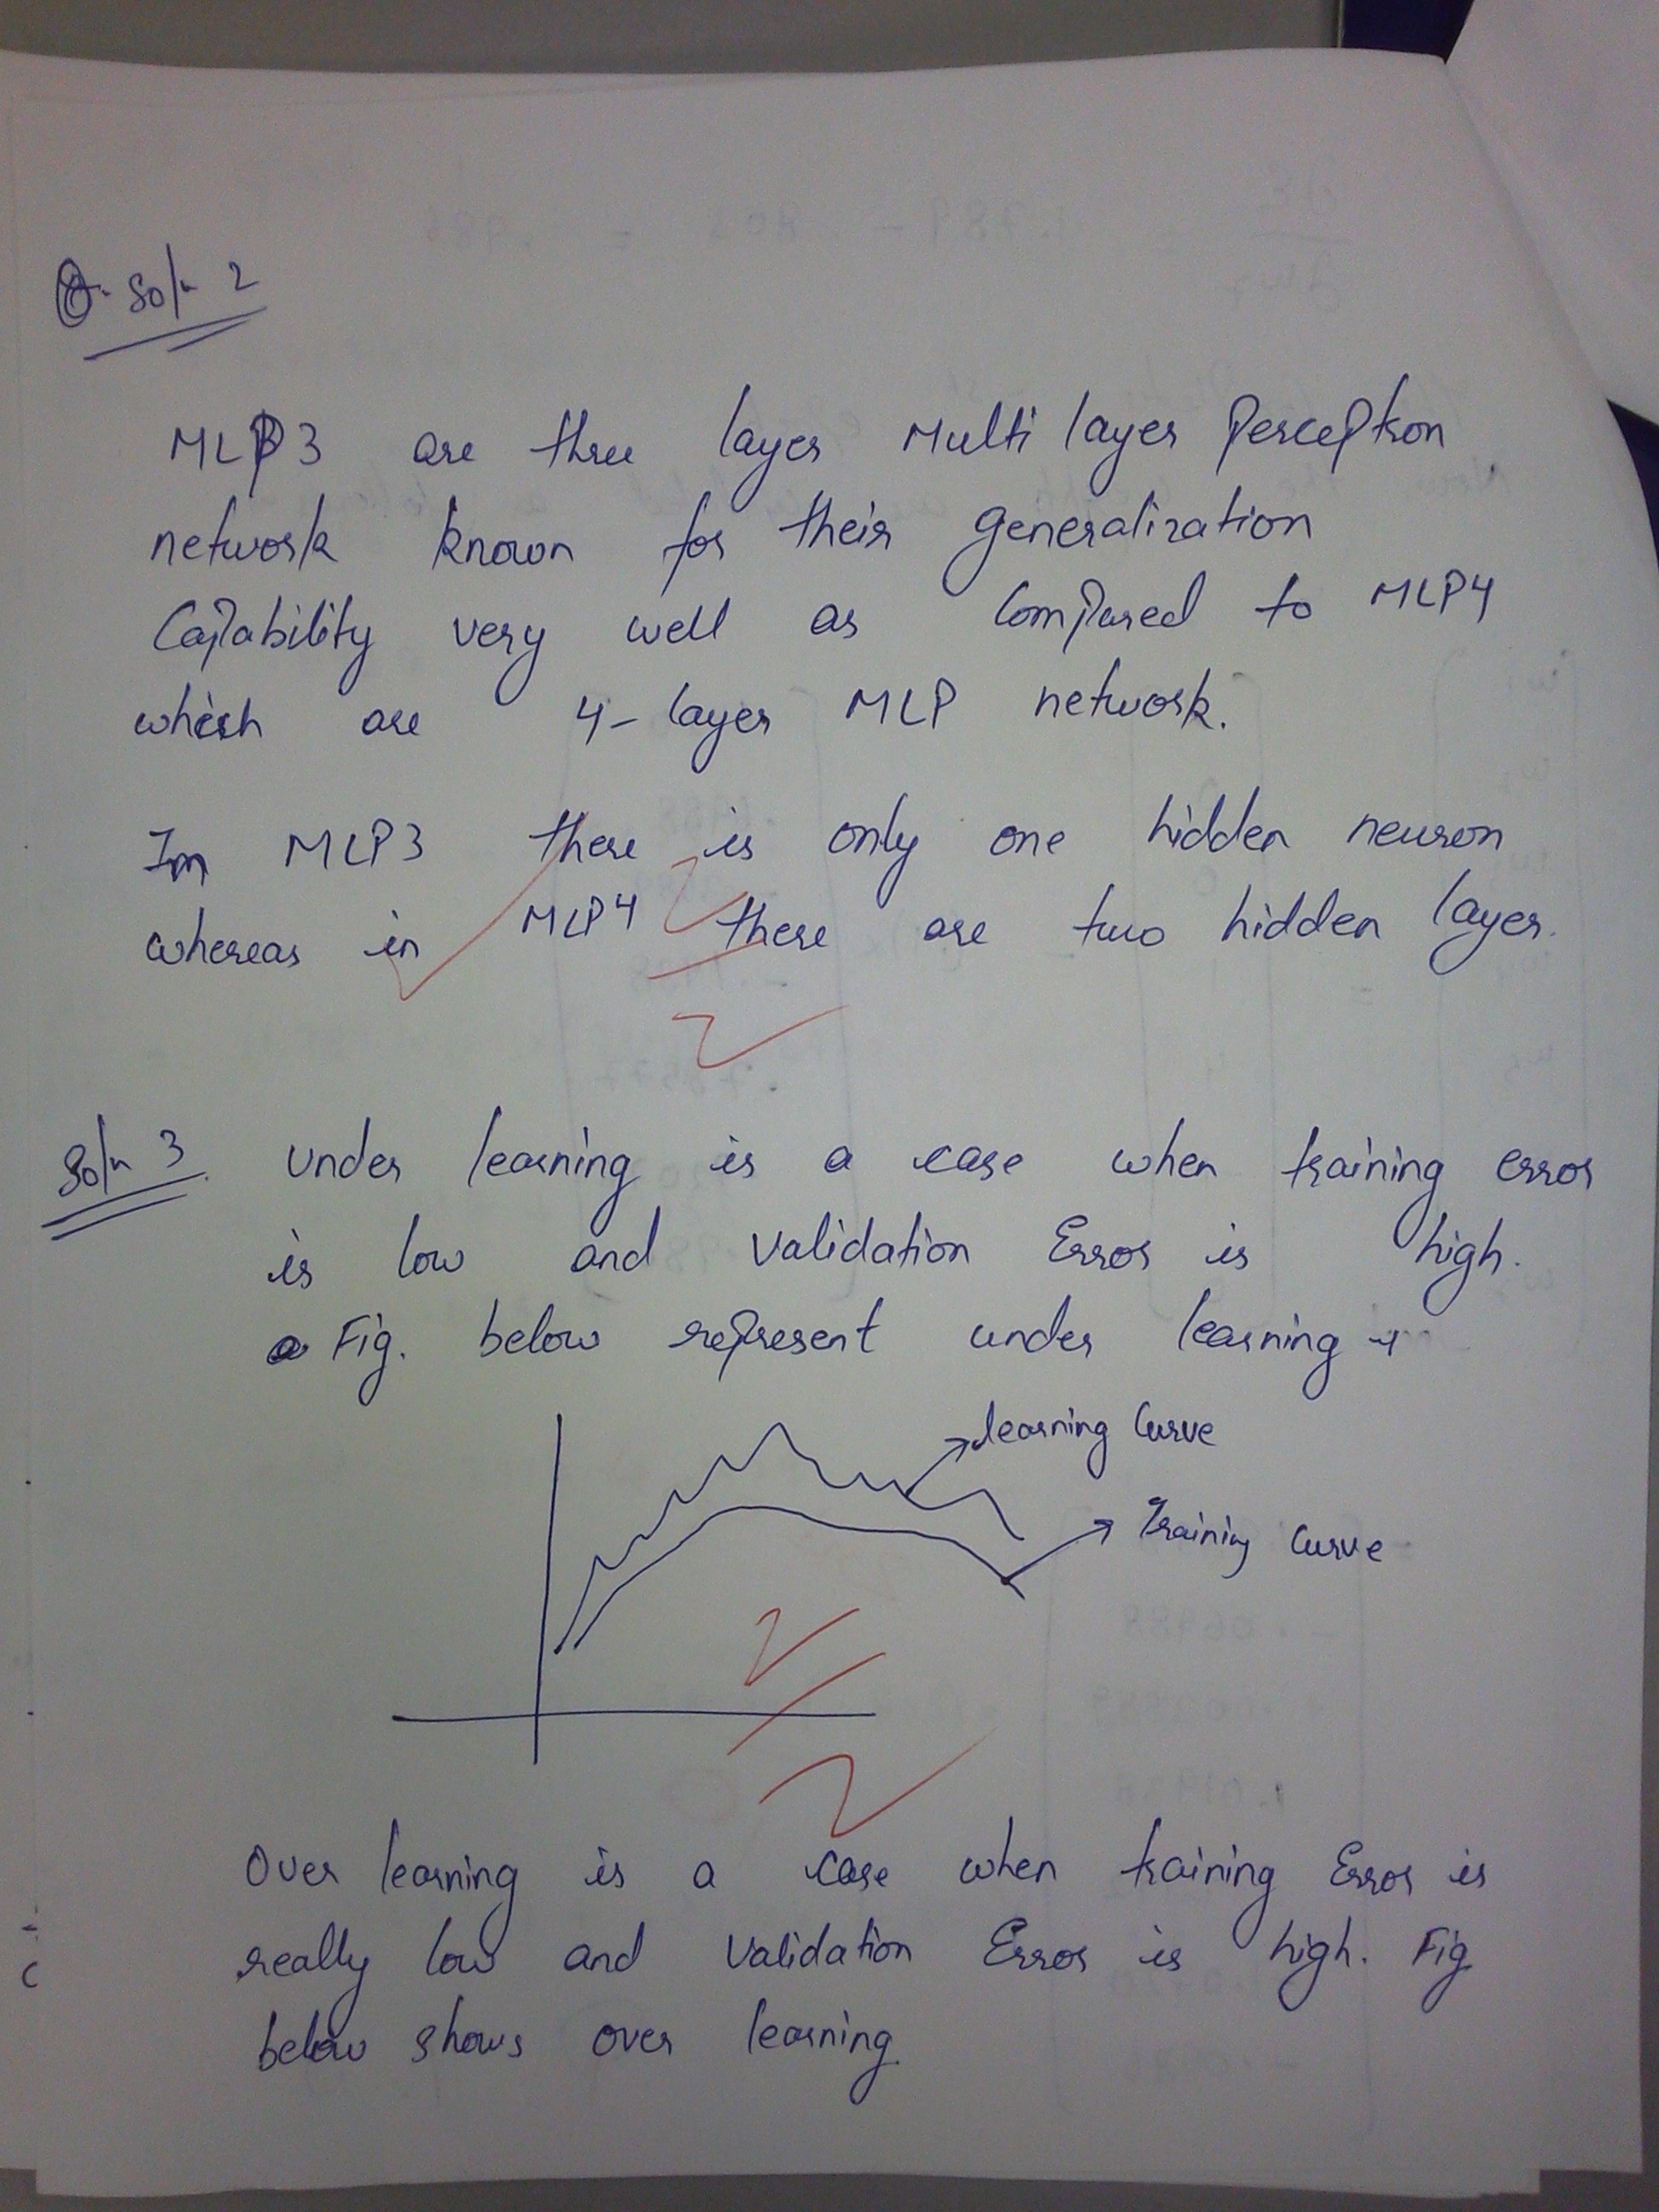 Soln 2
MLP3 are three layer Multi layer Perceptron
network known for their generalization
Capability very well as Compared to MLP4
which are 4-layer MLP network.
Im MLP3 there is only one hidden neuron
whereas in MLP4 there are two hidden layer.
Soln 3. Under learning is a case when training error
is low and Validation Error is high.
Fig. below represent under learning
learning Curve
Training Curve
Over learning is a case when training Error is
really low and Validation Error is high. Fig
below shows over learning.